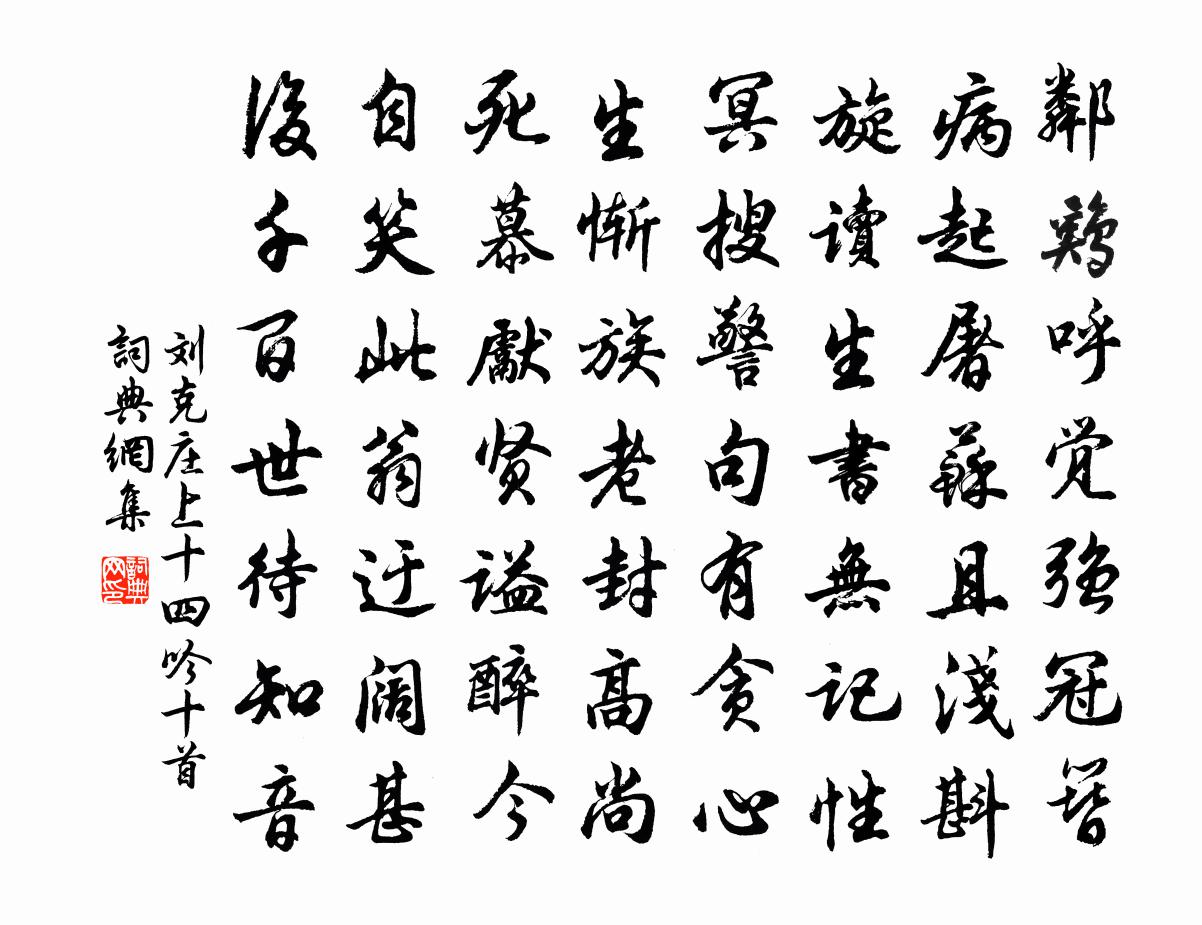 鄰鷄呼觉强冠簪
病起屠蘇且淺斟
旋讀生書無记性
冥搜警句有贪心
生惭族老封高尚
死慕獻贤谥醉今
自笑此翁迂阔甚
後千百世待知音
刘克庄上十四吟十首
詞典網集
詞典网印